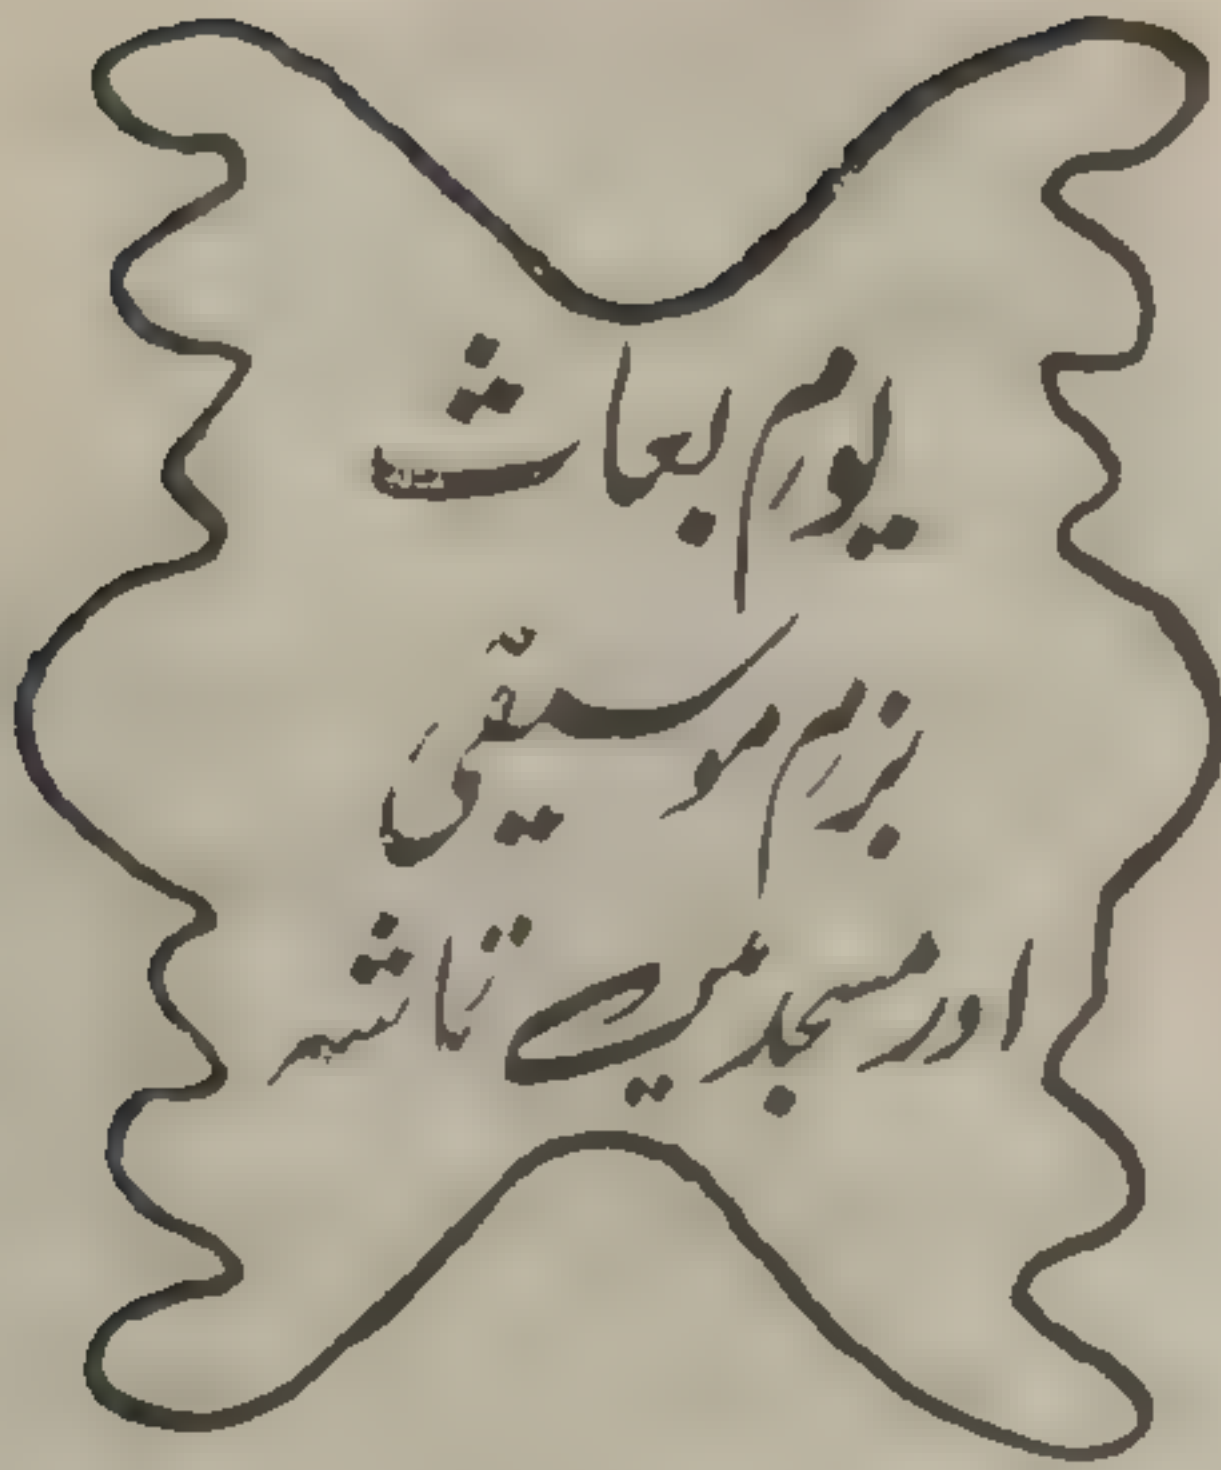 یومِ بعاث
بزمِ موسیقیَ
اور مسجد میں تَاشہ